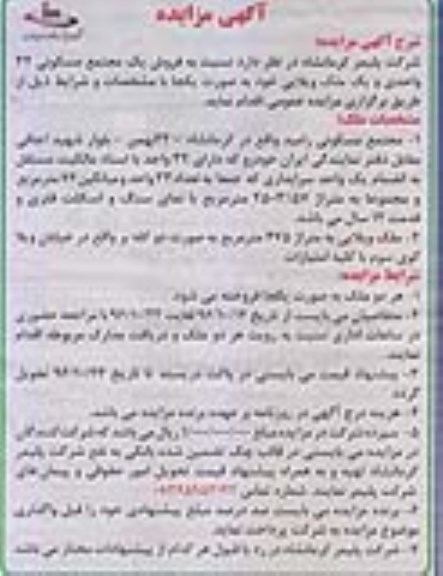 آگهی مزایده
شرح آگهی مزایده:
شرکت پلیمر کرمانشاه در نظر دارد نسبت به فروش یک مجتمع مسکونی ۲۲
واحدی و یک ملک ویلایی خود به صورت یکجا با مشخصات و شرایط ذیل از
طریق برگزاری مزایده عمومی اقدام نماید.
مشخصات ملک:
۱- مجتمع مسکونی واقع در کرمانشاه - ۲۲بهمن - بلوار شهید
مقابل دفتر نمایندگی ایران خودرو که دارای ۲۲ واحد با اسناد مالکیت مستقل
به انضمام یک واحد سرایداری که جمعا به تعداد ۲۳ واحد و میانگین
و مجموعا به متراژ مترمربع با نمای سنگ و اسکلت فلزی و
قدمت سال می باشد.
۲- ملک ویلایی به متراژ مترمربع به صورت دو کله و واقع در خیابان
کوی سوم با کلیه امتیازات
شرایط مزایده:
۱- هر دو ملک به صورت یکجا فروخته می شود.
۲- متقاضیان می بایست از تاریخ لغایت با مراجعه حضوری
در ساعات اداری نسبت به رویت هر دو ملک و دریافت مدارک مربوطه اقدام
نمایند.
۳- پیشنهاد قیمت می بایستی در پاکت دربسته تا تاریخ تحویل
گردد.
۴- هزینه درج آگهی در روزنامه بر عهده برنده مزایده می باشد.
۵- سپرده شرکت در مزایده مبلغ ریال می باشد که شرکت کنندگان
در مزایده می بایستی در قالب چک تضمین شده بانکی به نفع شرکت پلیمر
کرمانشاه تهیه و به همراه پیشنهاد قیمت تحویل امور حقوقی و پیمان های
شرکت پلیمر نمایند. شماره تماس
۶- برنده مزایده می بایست صد درصد مبلغ پیشنهادی خود را قبل واگذاری
موضوع مزایده به شرکت پرداخت نماید.
۷- شرکت پلیمر کرمانشاه در رد یا قبول هر کدام از پیشنهادات مختار می باشد.